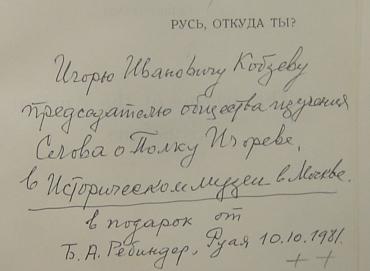 РУСЬ, ОТКУДА ТЫ?
Игорю Ивановичу Кобзеву
председателю общества изучения
Слова о Полку Игореве,
в Историческом музеи в Москве.
в подарок от
Б. А. Ребиндер, Руая 10.10.1981.
+ +